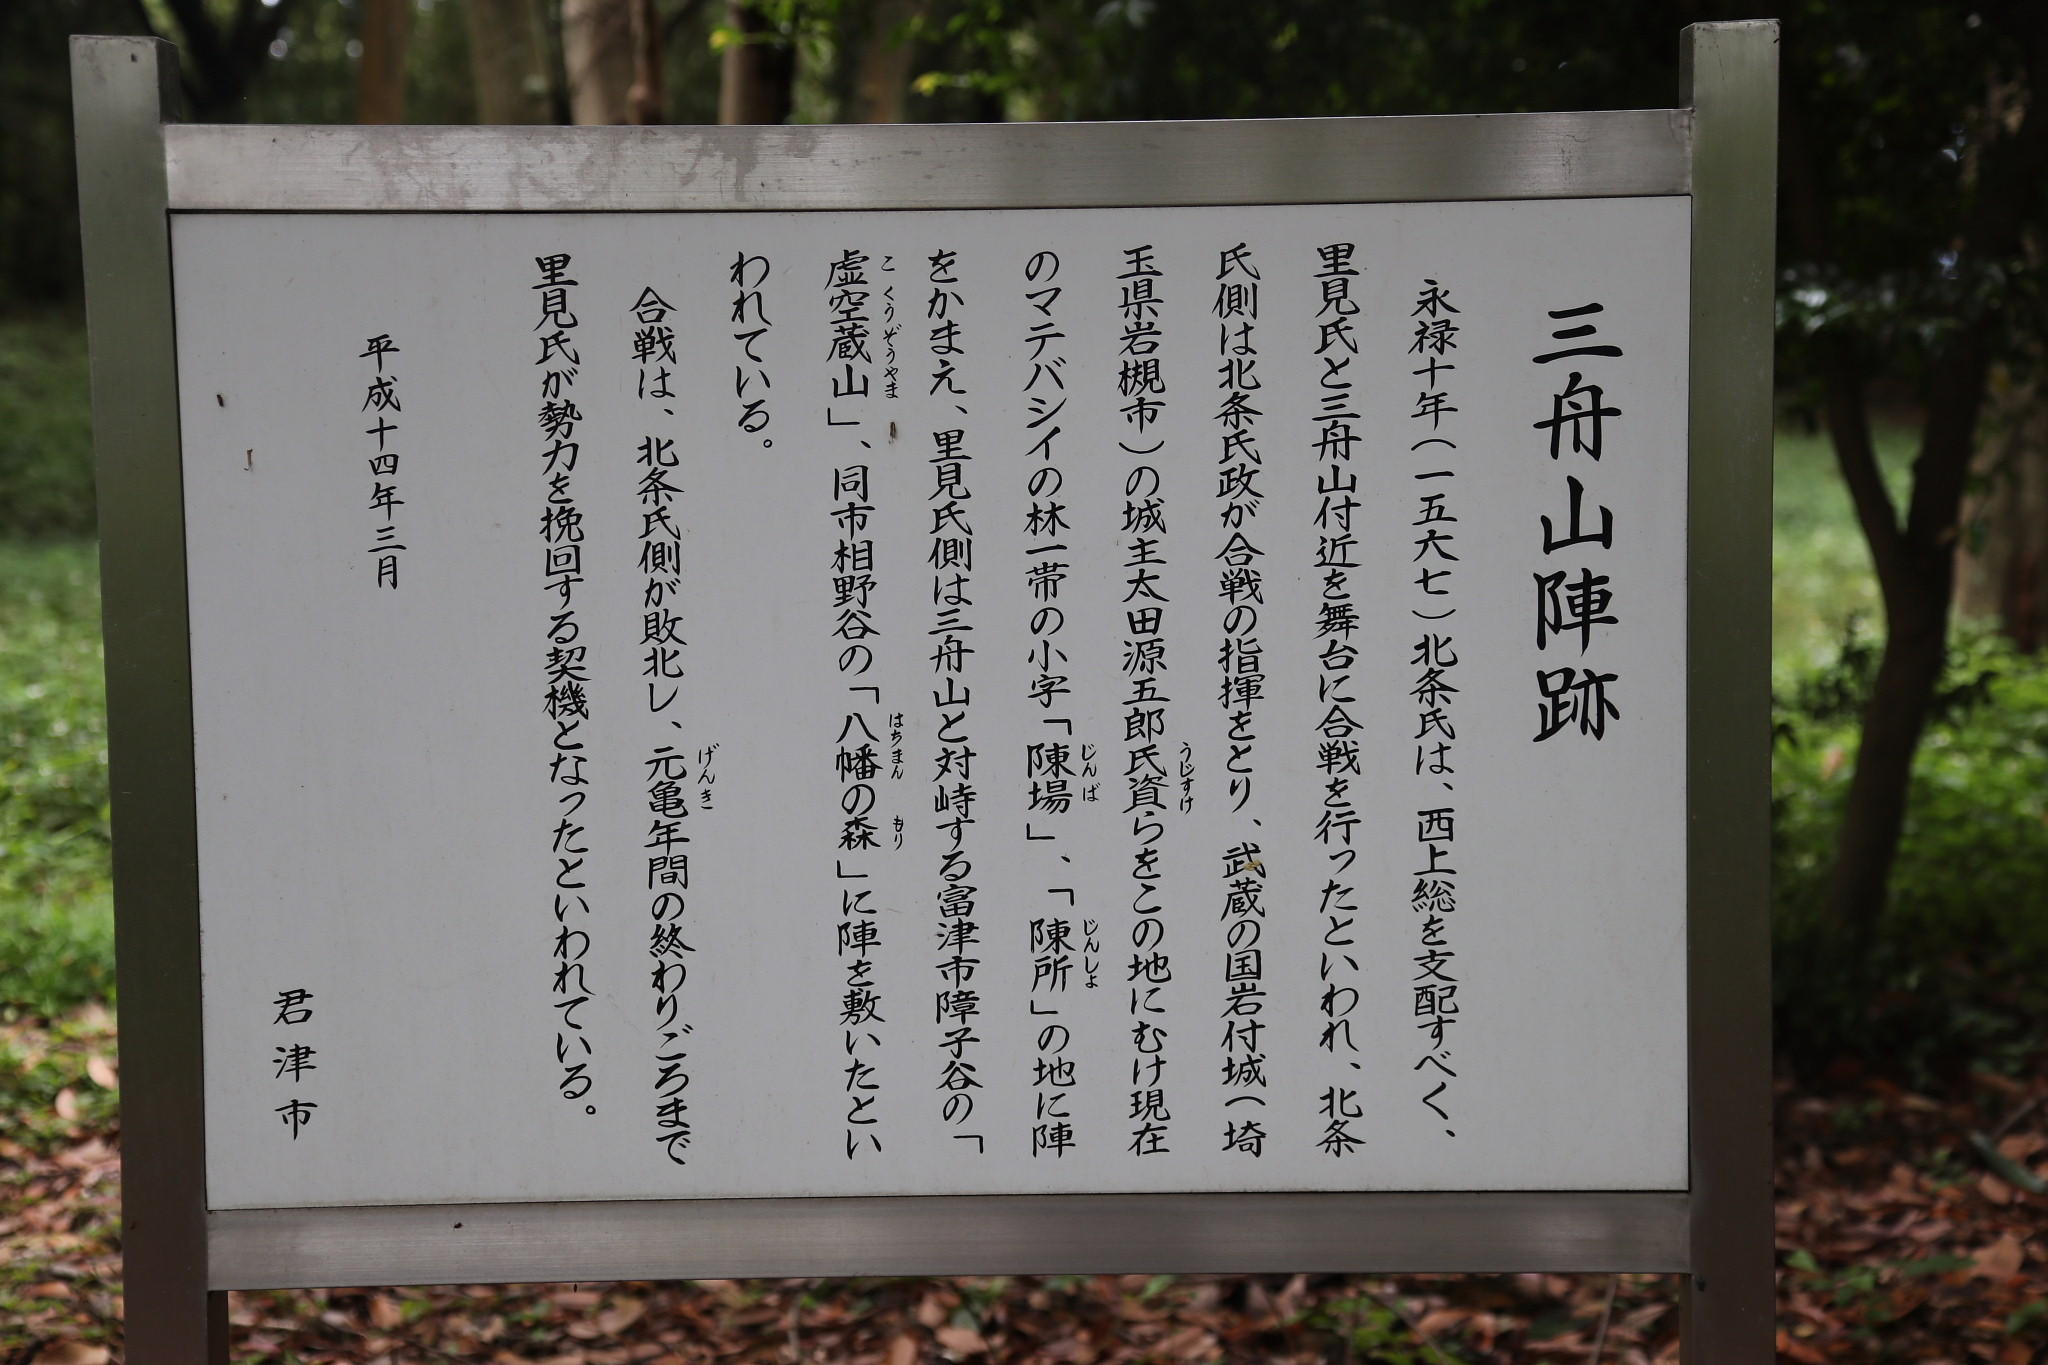 三舟山陣跡
永禄十年（一五六七）北条氏は、西上総を支配すべく、
里見氏と三舟山付近を舞台に合戦を行ったといわれ、北条
氏側は北条氏政が合戦の指揮をとり、武蔵の国岩付城（埼
玉県岩槻市）の城主太田源五郎氏資らをこの地にむけ現在
うじすけ
のマテバシイの林一帯の小字「陳場」、「陳所」の地に陣
じんば じんしょ
をかまえ、里見氏側は三舟山と対峙する富津市障子谷の「
虚空蔵山」、同市相野谷の「八幡の森」に陣を敷いたとい
こくうぞうやま はちまん もり
われている。
合戦は、北条氏側が敗北し、元亀年間の終わりごろまで
げんき
里見氏が勢力を挽回する契機となったといわれている。
平成十四年三月
君津市